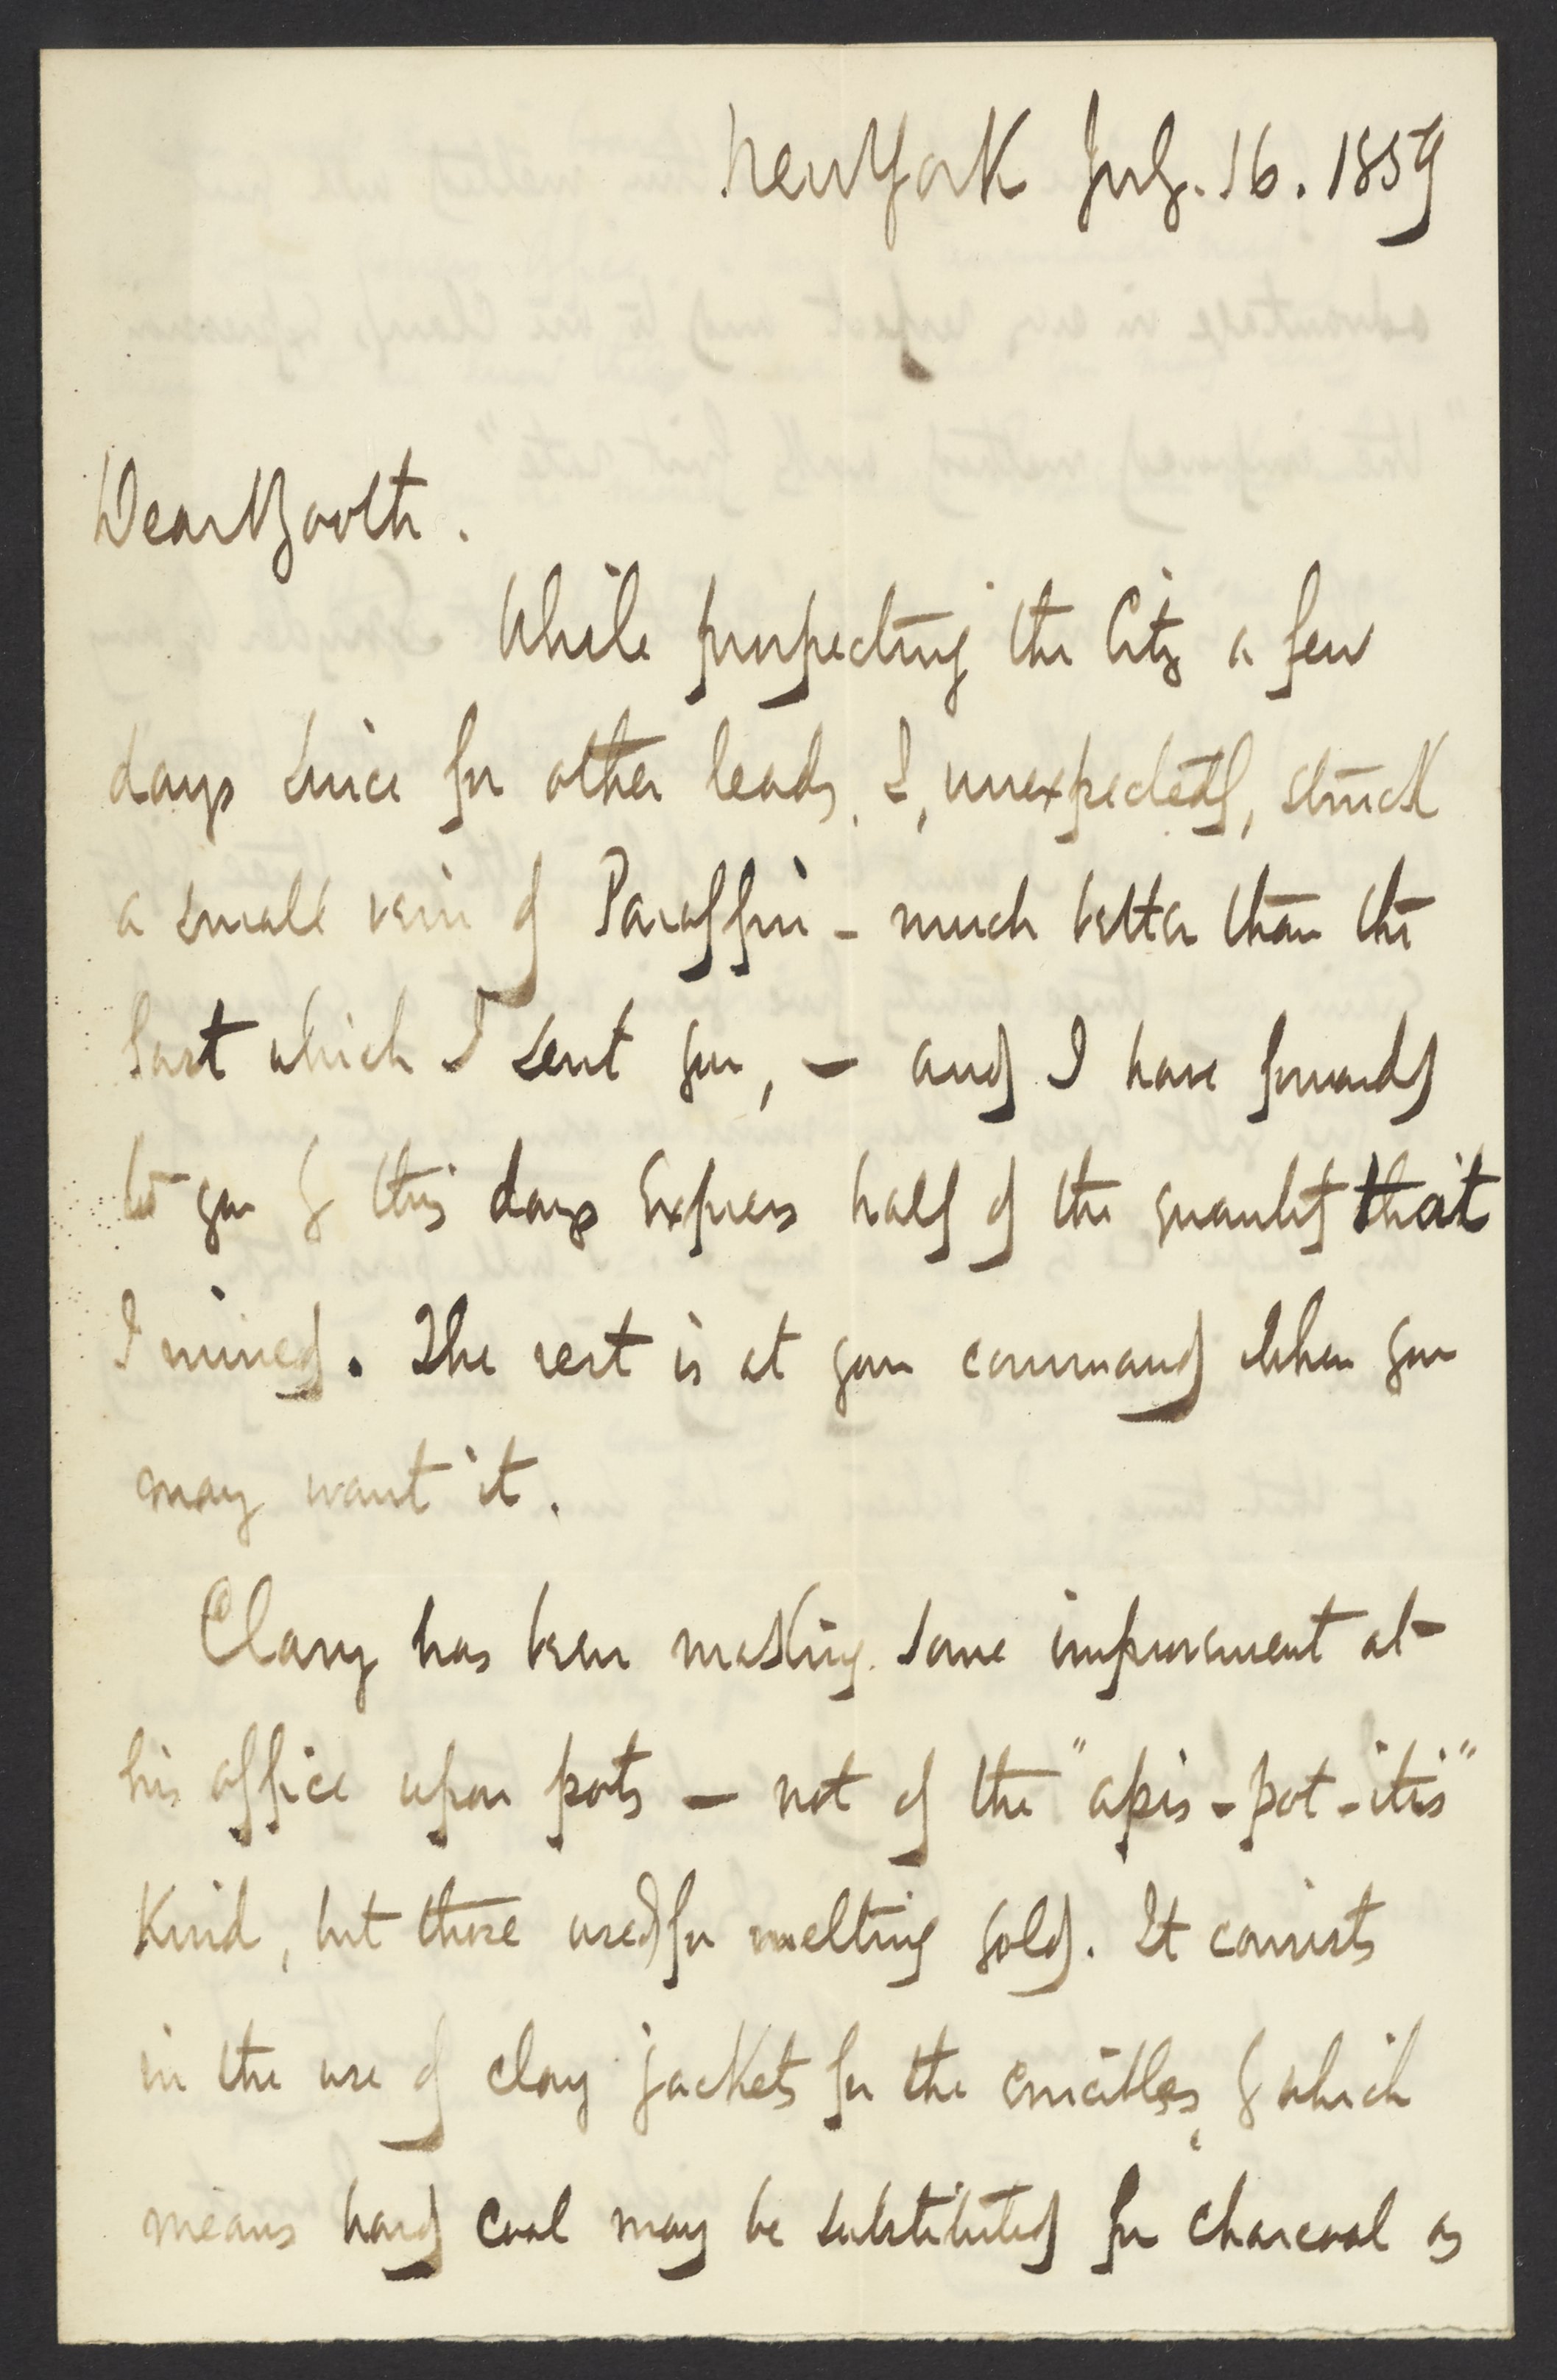 New York July. 16. 1859
Dear Booth.
While prospecting the City a few
days since for other leads, I, unexpectedly, struck
a small vein of Paraffin - much better than the
last which I sent you, - and I have forwarded
to you by this days Express half of the quantity that
I mined. The rest is at your command when you
may want it.
Clary has been making some improvement at
his office upon pots - not of the "apis-pot-itis"
Kind, but those used for melting gold. It consists
in the use of clay jackets for the crucibles, by which
means hard coal may be substituted for charcoal as